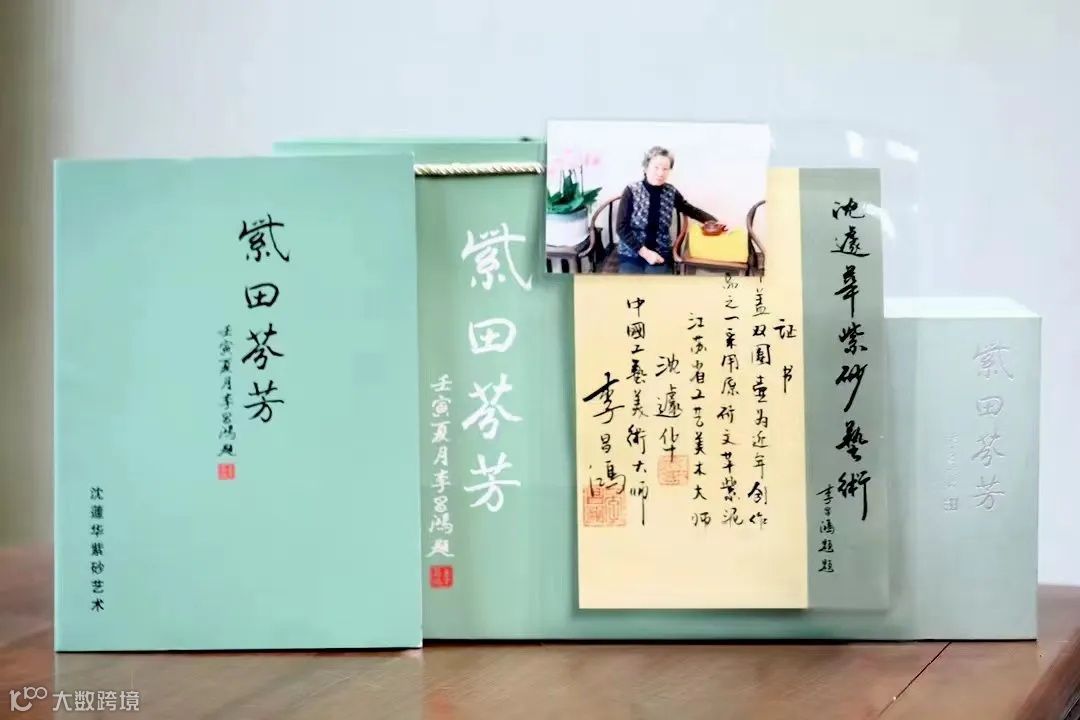 紫田芬芳
壬寅夏月李昌鸿題
沈蘧华紫砂艺术
紫田芬芳
壬寅夏月李昌鸿題
证书
盖双圆壶为近年创作
品之一采用原矿文革紫泥
江苏省工艺美术大师
沈蘧华
中國工藝美術大师
李昌鸿
沈蘧華紫砂藝術
李昌鸿題
紫田芬芳
大数跨境